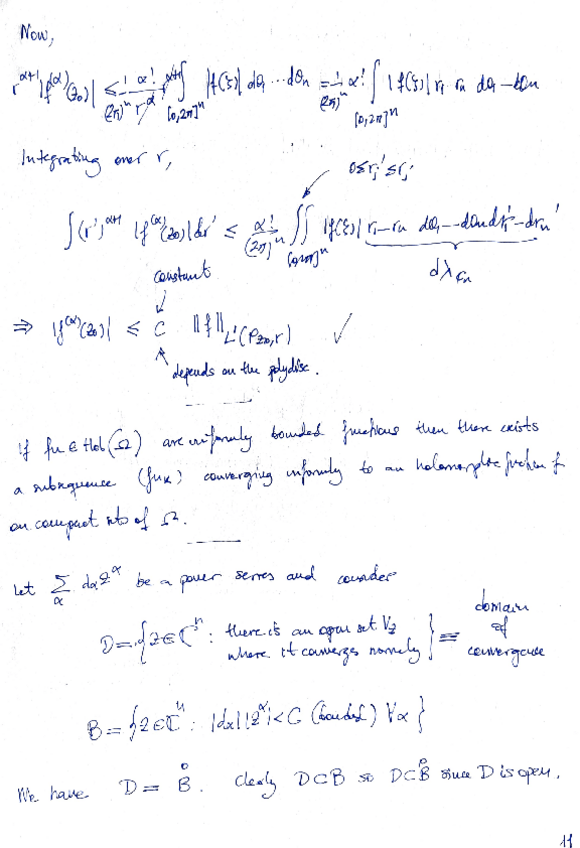 Now,
r^{α+1} |f^{(α)}(z₀)| ≤ \frac{1}{(2π)^n} \frac{α!}{r^α} r^{α+1} ∫_{[0,2π]^n} |f(ξ)| dθ₁ ... dθ_n = \frac{1}{(2π)^n} α! ∫_{[0,2π]^n} |f(ξ)| r₁ r_n dθ₁ - dθ_n
Integrating over r,
0≤r_j'≤r_j
∫(r')^{α+1} |f^{(α)}(z₀)| dr' ≤ \frac{α!}{(2π)^n} ∬_{[0,2π]^n} |f(ξ)| r₁ - r_n dθ₁ - - dθ_n dr₁' - dr_n'
dλ_{ℂ^n}
constant
⇒ |f^{(α)}(z₀)| ≤ C ‖f‖_{L¹(P_{z₀,r})} ✓
depends on the polydisc.
If f_n ∈ Hol(Ω) are uniformly bounded functions then there exists
a subsequence (f_{n_k}) converging uniformly to an holomorphic function f
on compact sets of Ω.
Let ∑_α d_α z^α be a power series and consider
D = {z ∈ ℂ^n : there is an open set V_z where it converges normally} ≡ domain of convergence
B = {z ∈ ℂ^n : |d_α| |z^α| < C (bounded) ∀α}
We have D = B̊. Clearly D⊂B so D⊂B̊ since D is open.
11